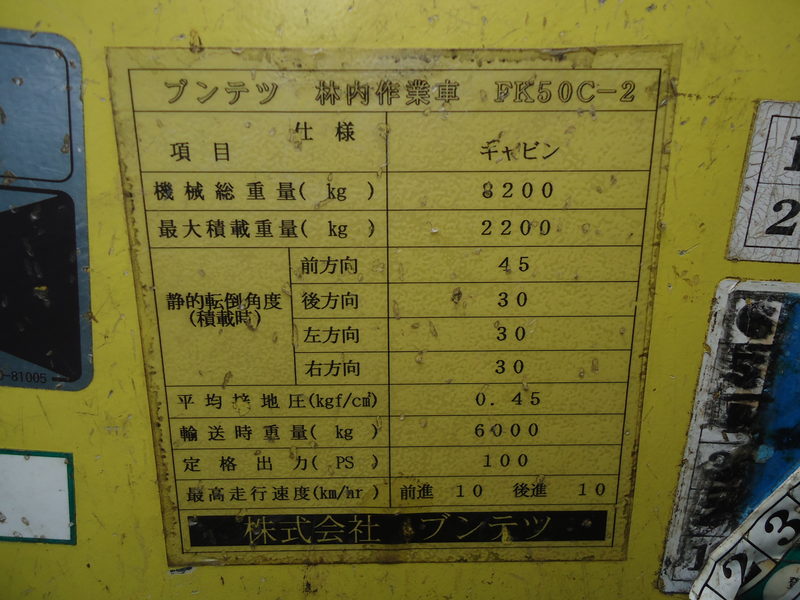 ブンテツ 林内作業車 FK50C-2
仕様
項目 キャビン
機械総重量( kg ) 8200
最大積載重量( kg ) 2200
静的転倒角度
(積載時)
前方向 45
後方向 30
左方向 30
右方向 30
平均接地圧(kgf/c㎡) 0.45
輸送時重量( kg ) 6000
定格出力( PS ) 100
最高走行速度(km/hr) 前進 10 後進 10
株式会社 ブンテツ
-81005
2
2
3